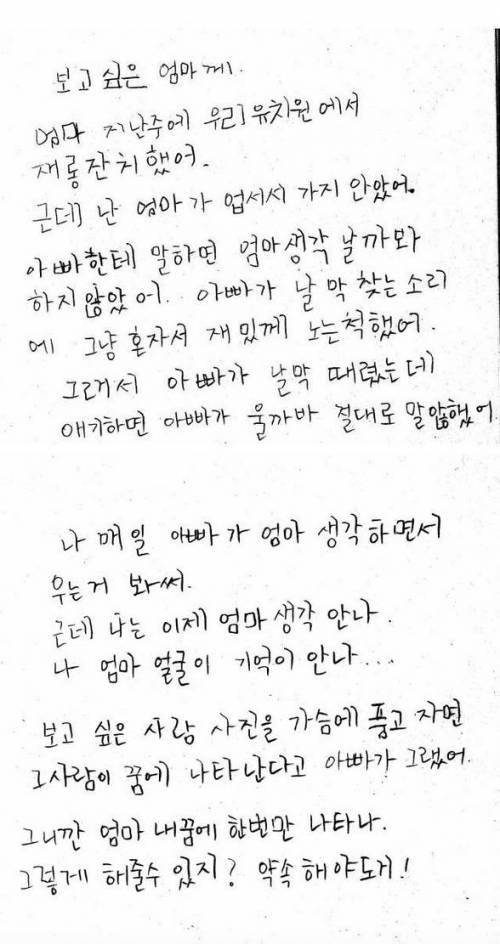 보고 싶은 엄마께.
엄마 지난주에 우리유치원에서
재롱잔치했어.
근데 난 엄마가 업서서 가지 안았어.
아빠한테 말하면 엄마생각 날까봐
하지 않았어. 아빠가 날 막 찾는 소리
에 그냥 혼자서 재밌께 노는척했어.
그러서 아빠가 날막 때렸는데
얘기하면 아빠가 울까바 절대로 말않했어
나 매일 아빠가 엄마 생각하면서
우는거 봐써.
근데 나는 이제 엄마생각 안나.
나 엄마 얼굴이 기억이 안나...
보고 싶은 사람 사진을 가슴에 품고 자면
그사람이 꿈에 나타난다고 아빠가 그랬어.
그니깐 엄마 내꿈에 한번만 나타나.
그렇게 해줄수 있지? 약속해야도거!